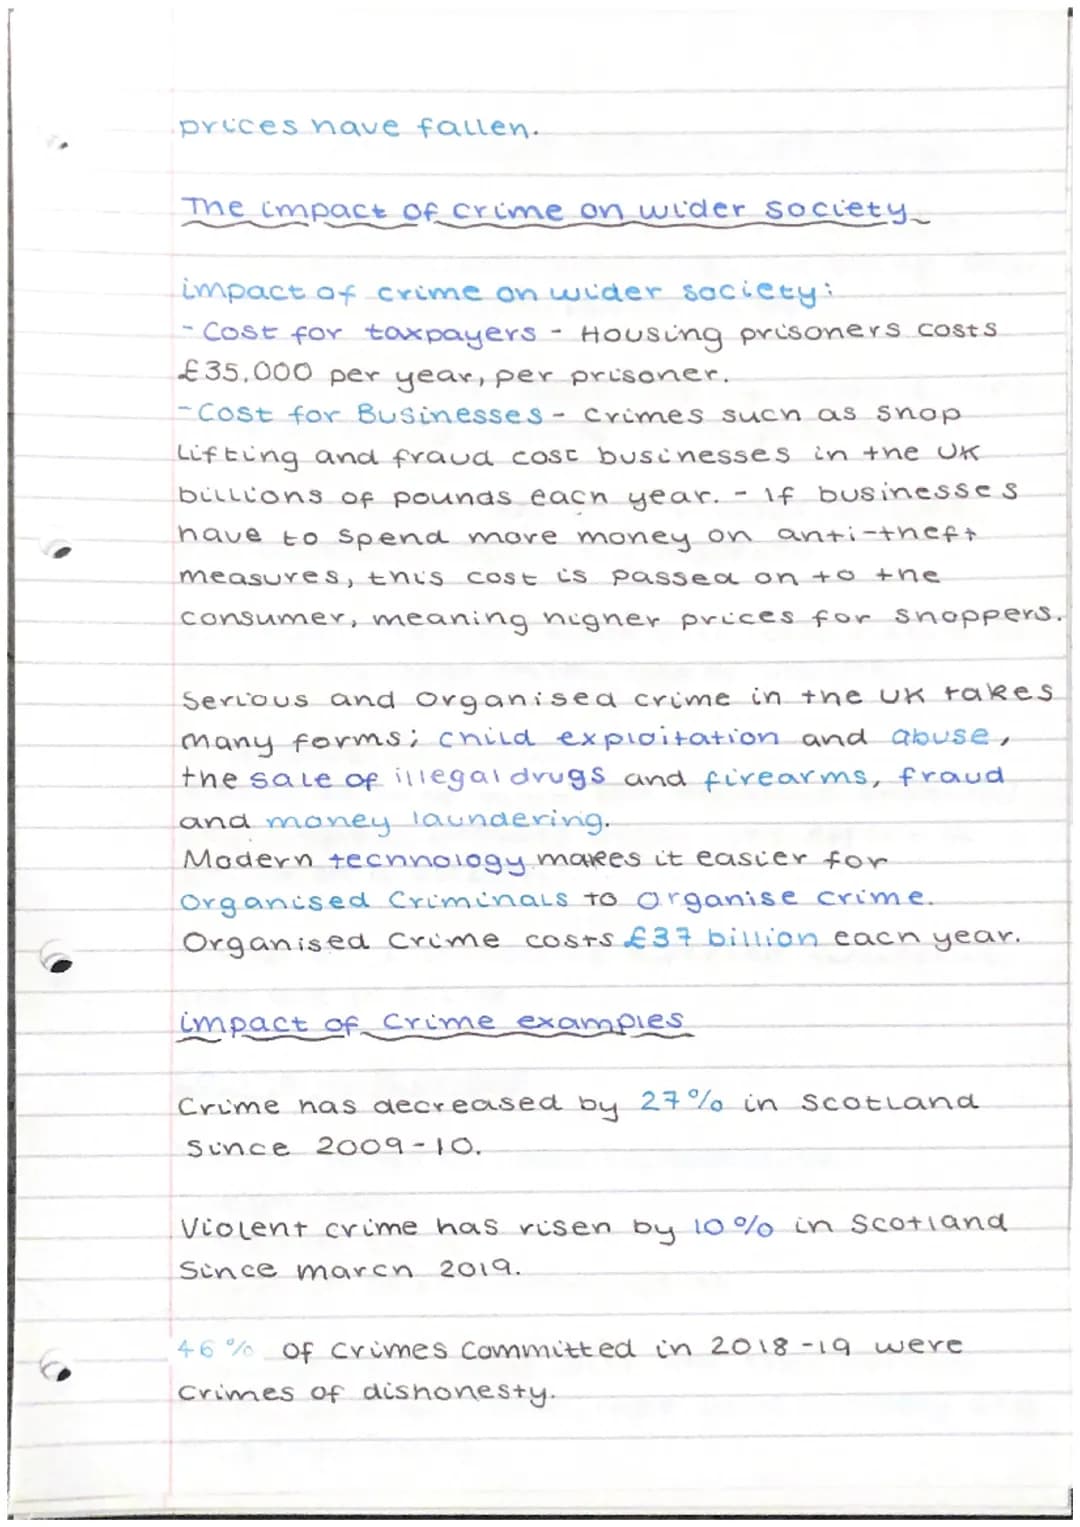 prices have fallen.
The impact of crime on wider society
impact of crime on wider society:
- Cost for taxpayers - Housing prisoners costs
£35,000 per year, per prisoner.
- Cost for Businesses - crimes such as shop
lifting and fraud cost businesses in the UK
billions of pounds each year. - If businesses
have to spend more money on anti-theft
measures, this cost is passed on to the
consumer, meaning higher prices for shoppers.
Serious and Organised crime in the UK takes
many forms; child exploitation and abuse,
the sale of illegal drugs and firearms, fraud
and money laundering.
Modern technology makes it easier for
Organised Criminals to organise crime.
Organised Crime costs £37 billion each year.
impact of Crime examples
Crime has decreased by 27% in Scotland
Since 2009-10.
Violent crime has risen by 10% in Scotland
Since march 2019.
46% of crimes committed in 2018-19 were
crimes of dishonesty.